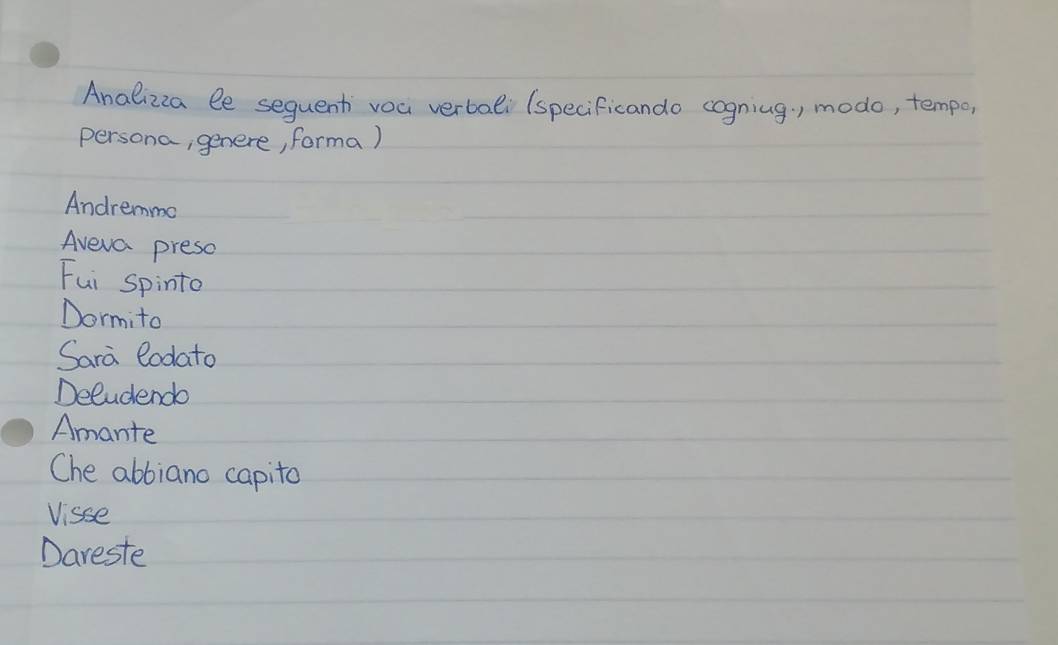 Analizza le seguenti voci verbali (specificando cogniug., modo, tempo,
persona, genere, forma)
Andremmo
Aveva preso
Fui spinto
Dormito
Sarà lodato
Deludendo
Amante
Che abbiano capito
Visse
Dareste